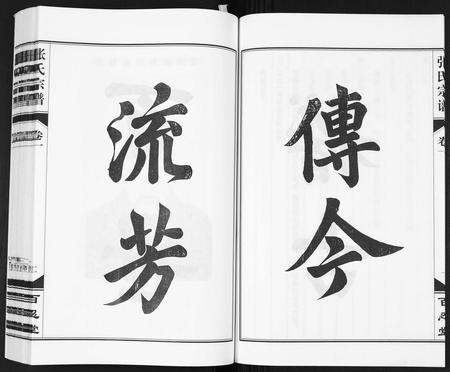 張氏宗譜
卷
百忍堂
傳今
流芳
張氏宗譜
卷
百忍堂